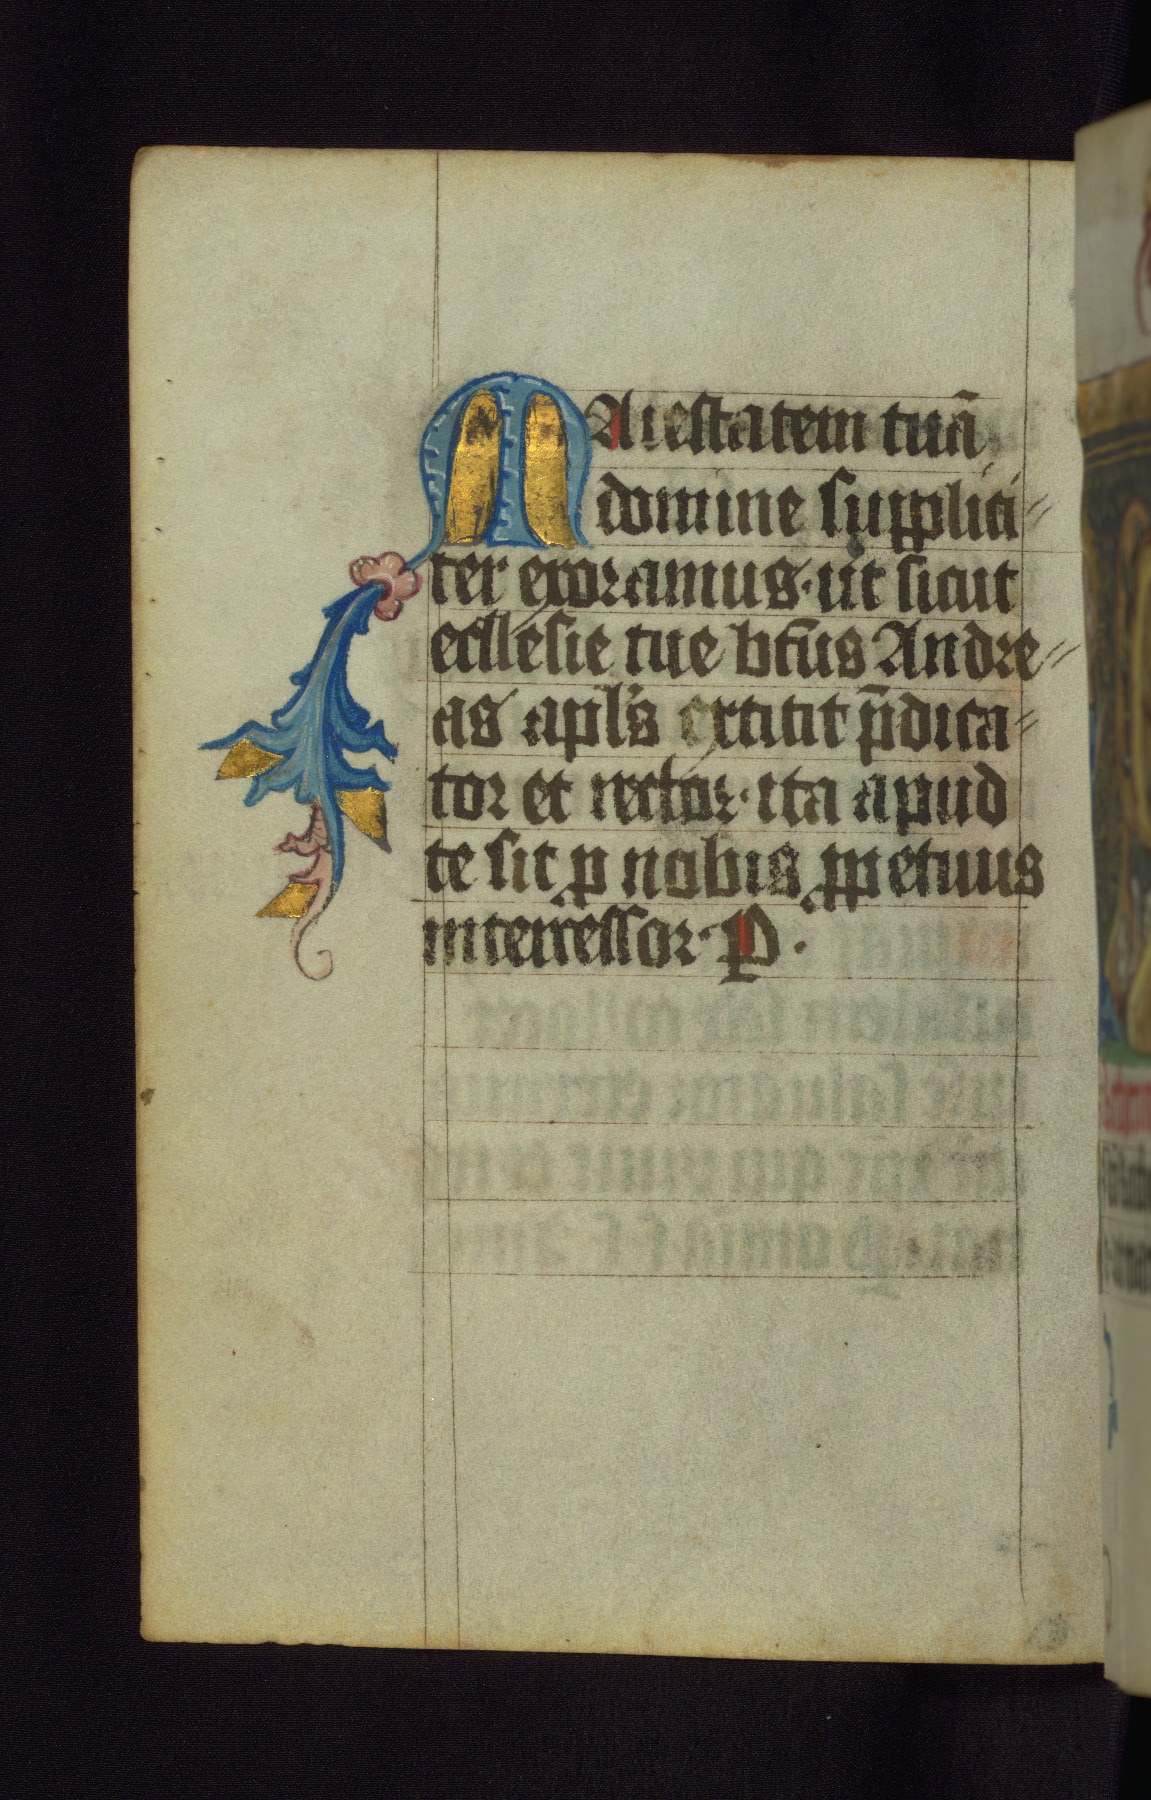 MAiestatem tuā
domine supplici〃
ter exoramus · ut sicut
ecclesie tue btūs Andre〃
as apl's extitit p̄dica〃
tor et rector · ita apud
te sit ꝓ nobis ꝑpetuus
intercessor · P ·